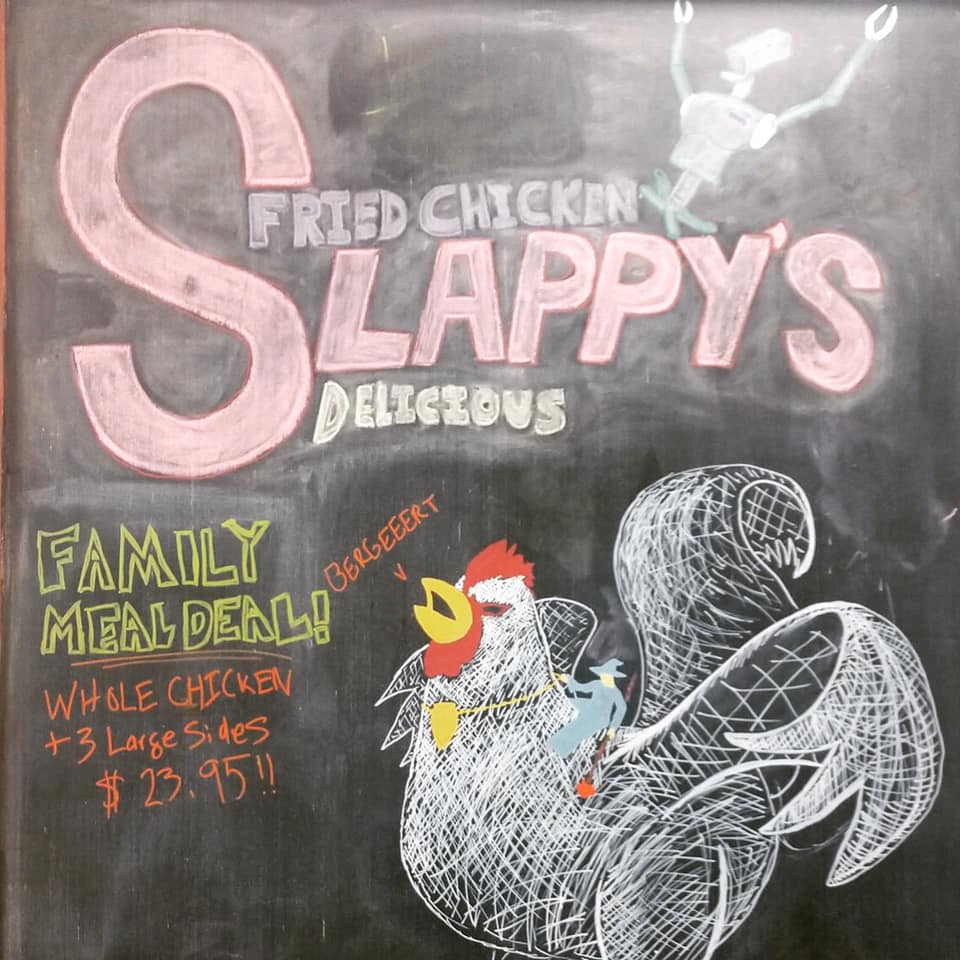 FRIED CHICKEN
SLAPPY'S
DELICIOUS
FAMILY
MEAL DEAL!
BERGEEERT
WHOLE CHICKEN
+ 3 Large Sides
$ 23.95!!